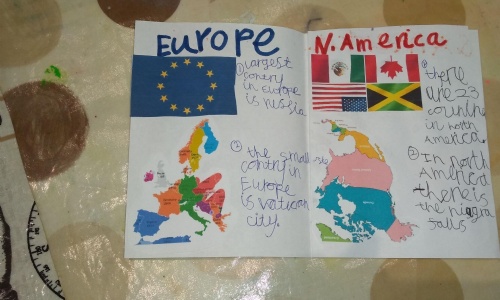 Europe
① largest
contry
in europe
is russia
② the smallest
contry in
Europe
is vatican
city.
N. America
① there
are 23
countrie
in north
America
② In north
America
there is
the niagra
falls